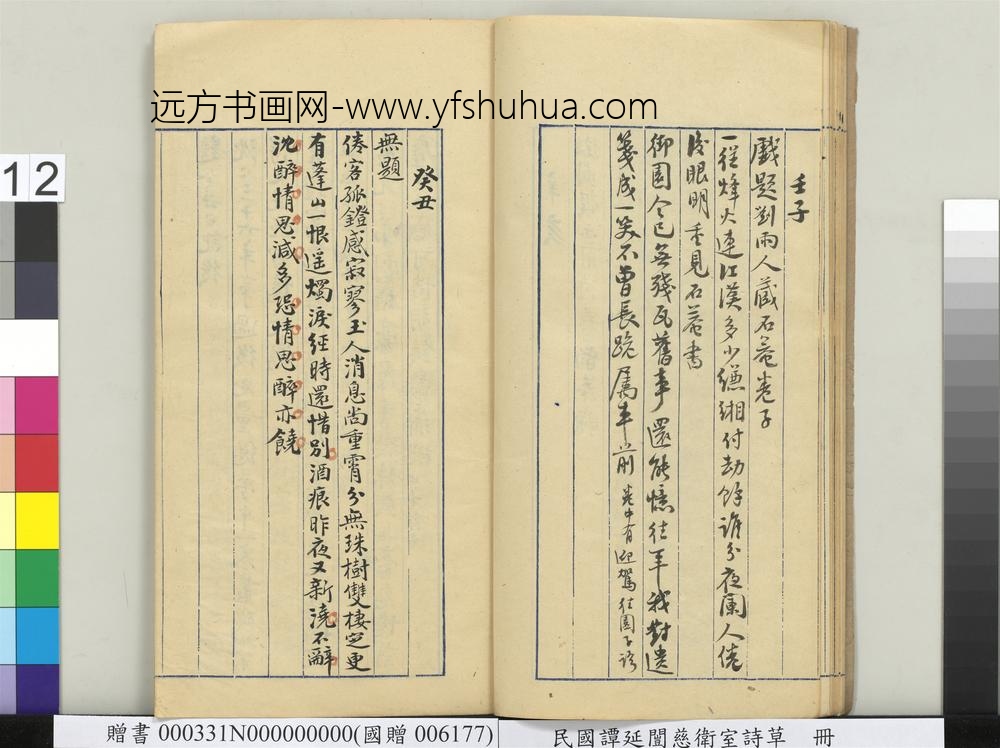 远方书画网-www.yfshuhua.com
壬子
戲題劉雨人藏石菴卷子
一從烽火連江漢多少縑緗付劫餘誰分夜闌人倦
後眼明重見石菴書
御園今已無殘瓦舊事還能憶往年我對遺
箋成一笑不曾長跪屬車前 卷中有迎駕往園子語
癸丑
無題
倦客孤鐙感寂寥玉人消息尚重霄分無珠樹雙棲定更
有蓬山一恨遥燭淚經時還惜别酒痕昨夜又新澆不辭
沈醉情思減多恐情思醉亦饒
12
贈書 000331N000000000(國贈 006177)
民國譚延闓慈衛室詩草 冊